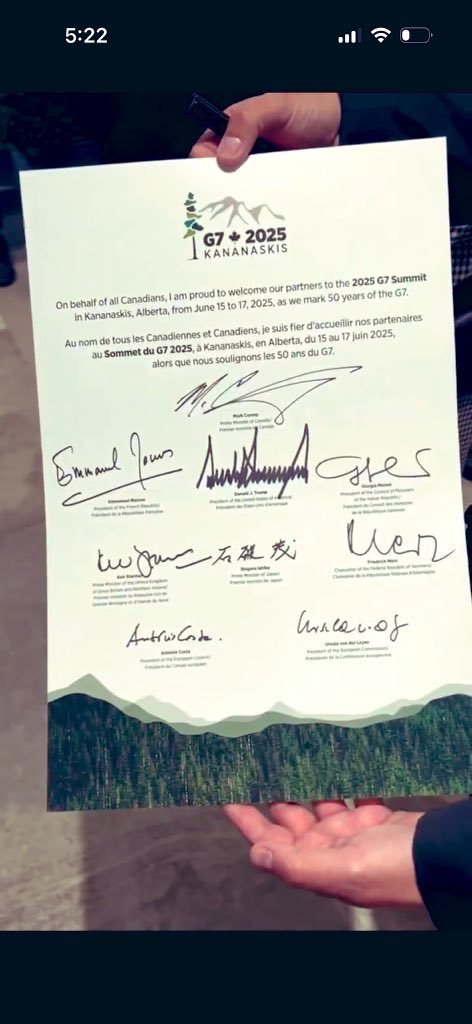 5:22
G7 2025
KANANASKIS
On behalf of all Canadians, I am proud to welcome our partners to the 2025 G7 Summit
in Kananaskis, Alberta, from June 15 to 17, 2025, as we mark 50 years of the G7.
Au nom de tous les Canadiennes et Canadiens, je suis fier d'accueillir nos partenaires
au Sommet du G7 2025, à Kananaskis, en Alberta, du 15 au 17 juin 2025,
alors que nous soulignons les 50 ans du G7.
Mark Carney
Prime Minister of Canada/
Premier ministre du Canada
Emmanuel Macron
President of the French Republic/
Président de la République française
Donald J. Trump
President of the United States of America/
Président des États-Unis d'Amérique
Giorgia Meloni
President of the Council of Ministers
of the Italian Republic/
Présidente du Conseil des ministres
de la République italienne
Keir Starmer
Prime Minister of the United Kingdom
of Great Britain and Northern Ireland/
Premier ministre du Royaume-Uni de
Grande-Bretagne et d'Irlande du Nord
Shigeru Ishiba
Prime Minister of Japan/
Premier ministre du Japon
Merz
Friedrich Merz
Chancellor of the Federal Republic of Germany/
Chancelier de la République fédérale d'Allemagne
António Costa.
António Costa
President of the European Council/
Président du Conseil européen
Ursula von der Leyen
President of the European Commission/
Présidente de la Commission européenne